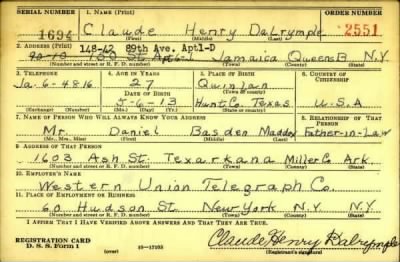 SERIAL NUMBER 1. NAME (Print) ORDER NUMBER
1694 Claude Henry DaLrymple 2551
(First) (Middle) (Last)
2. ADDRESS (Print) 148-42 89th Ave. Aptl-D
Jamaica Queens N.Y.
(Number and street or R. F. D. number) (Town) (County) (State)
3. TELEPHONE 4. AGE IN YEARS 5. PLACE OF BIRTH 6. COUNTRY OF CITIZENSHIP
Ja-6-4816 27 Quinlan
DATE OF BIRTH (Town or county)
5-6-13 Hunt Co. Texas U.S.A
(Exchange) (Number) (Mo.) (Day) (Yr.) (State or country)
7. NAME OF PERSON WHO WILL ALWAYS KNOW YOUR ADDRESS 8. RELATIONSHIP OF THAT PERSON
Mr. Daniel Basden Maddox Father-in-Law
(Mr., Mrs., Miss) (First) (Middle) (Last)
9. ADDRESS OF THAT PERSON
1603 Ash St. Texarkana Miller Co. Ark.
(Number and street or R. F. D. number) (Town) (County) (State)
10. EMPLOYER'S NAME
Western Union Telegraph Co.
11. PLACE OF EMPLOYMENT OR BUSINESS
60 Hudson St. New York N.Y. N.Y.
(Number and street or R. F. D. number) (Town) (County) (State)
I AFFIRM THAT I HAVE VERIFIED ABOVE ANSWERS AND THAT THEY ARE TRUE.
REGISTRATION CARD
D. S. S. Form 1 16-17105 Claude Henry Dalrymple
(Registrant's signature)